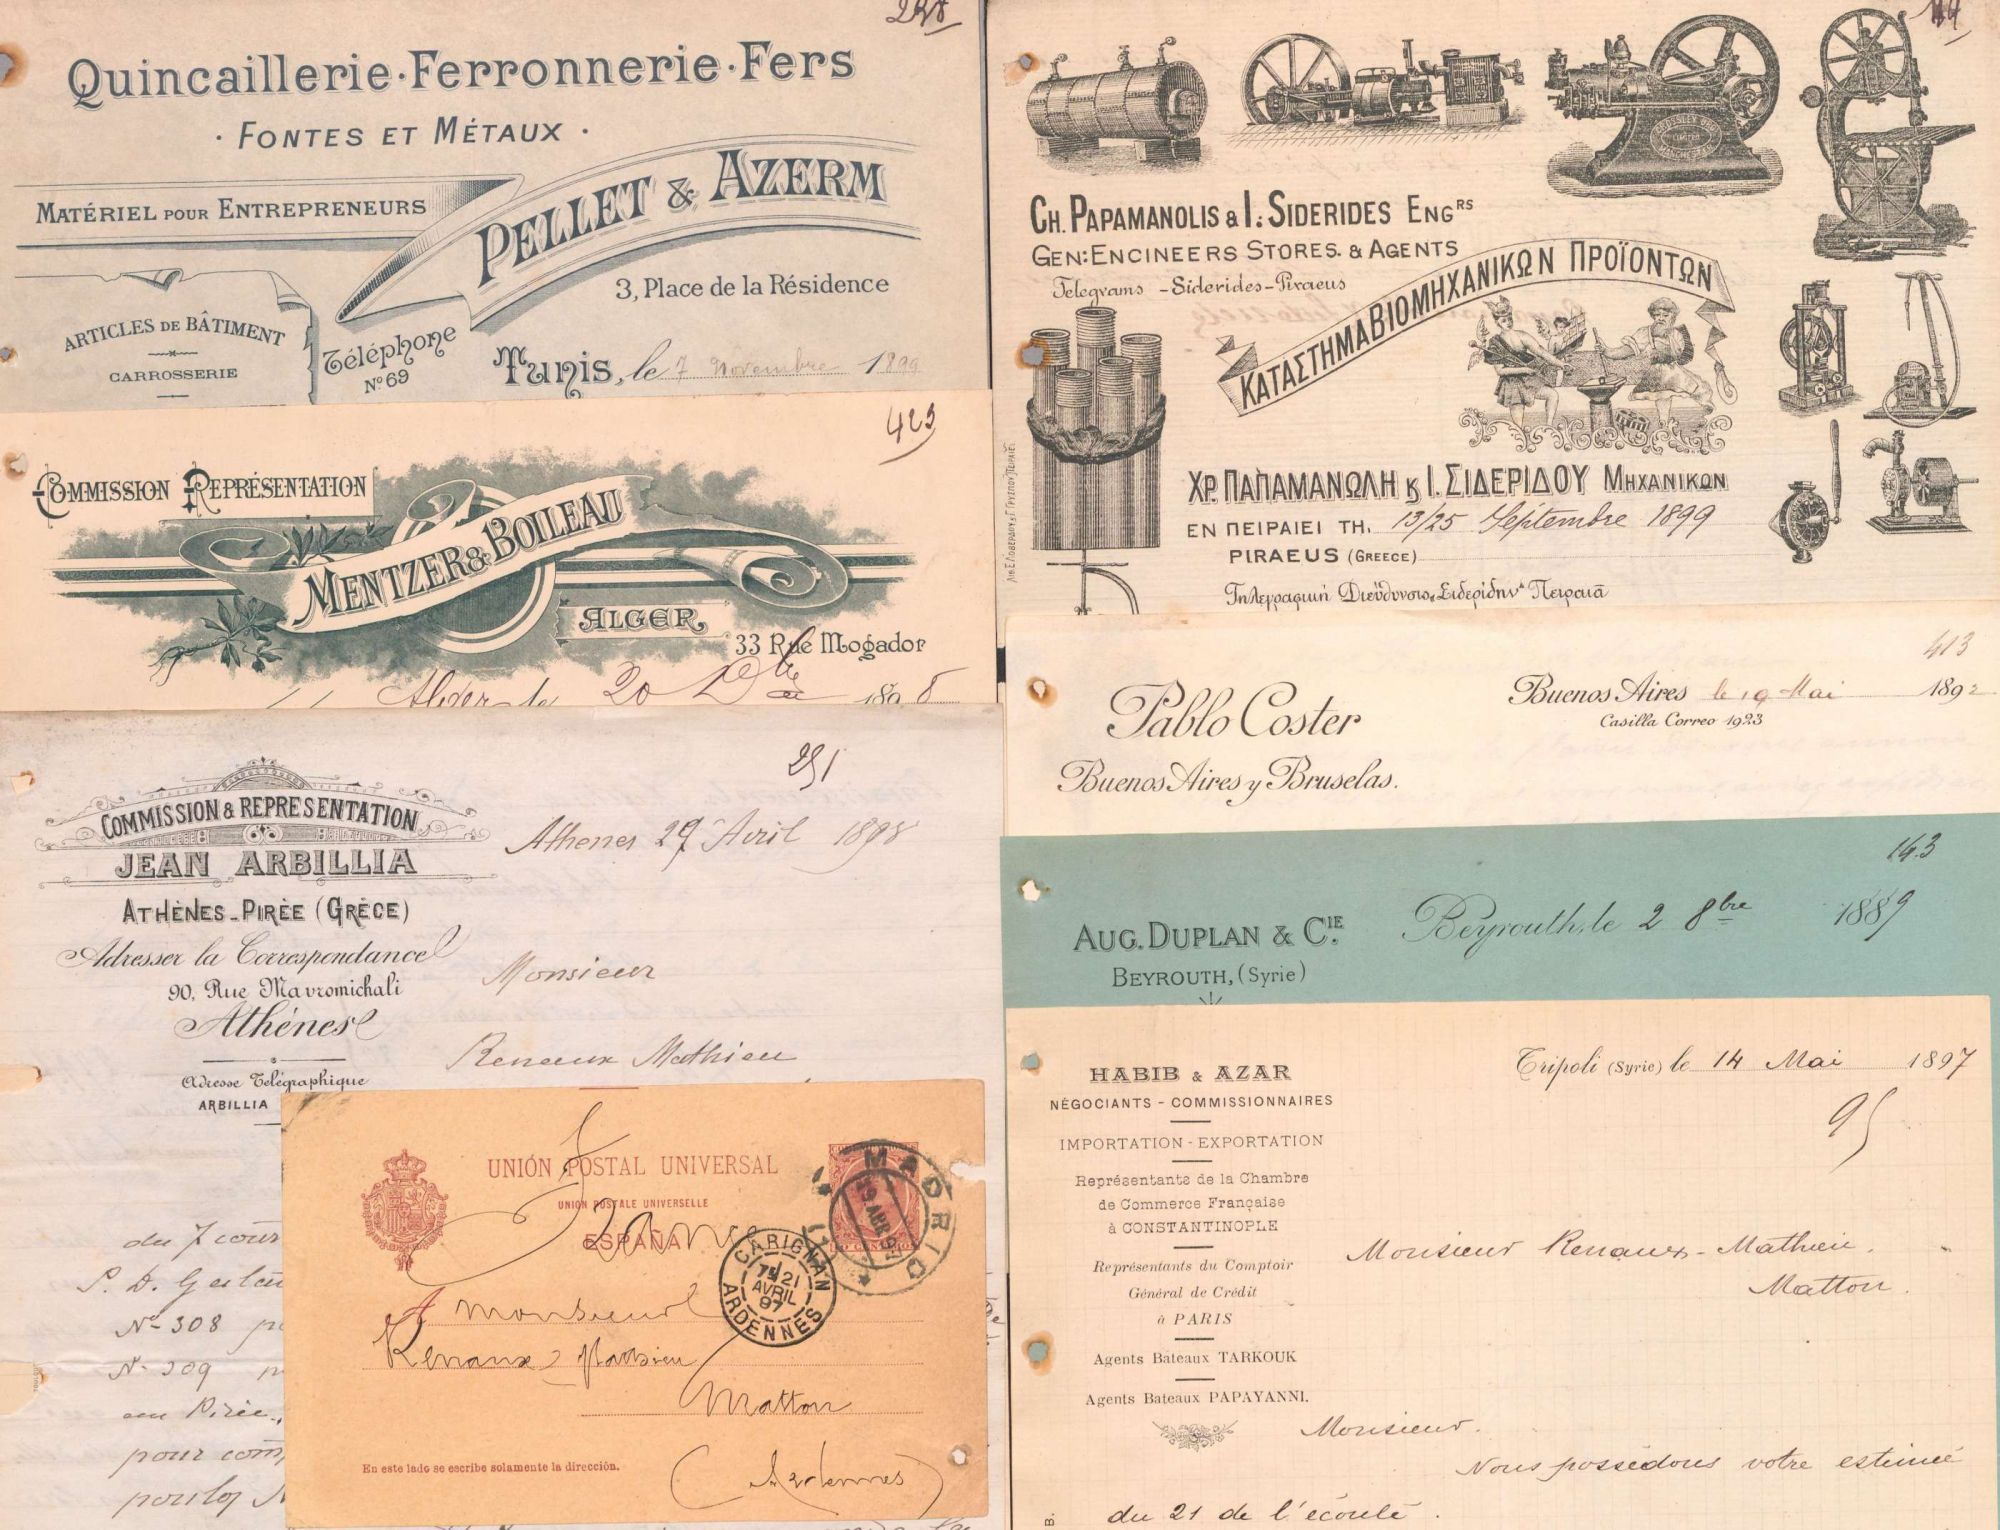 Quincaillerie · Ferronnerie · Fers
· FONTES ET MÉTAUX ·
MATÉRIEL POUR ENTREPRENEURS
PELLET & AZERM
3, Place de la Résidence
ARTICLES DE BÂTIMENT
CARROSSERIE
Téléphone
N° 69
Tunis, le 7 Novembre 1899
423
COMMISSION REPRÉSENTATION
MENTZER & BOILEAU
ALGER
33 Rue Mogador
Alger le 20 Xbre 1898
COMMISSION & REPRESENTATION
JEAN ARBILLIA
ATHÈNES - PIRÉE (GRÈCE)
Adresser la Correspondance
90, Rue Mavromichali
Athénes
Adresse Télégraphique
ARBILLIA
251
Athenes 27 Avril 1898
Monsieur
Renaux Mathieu
du 7 cour
N° 308
N° 309
au Pirée,
pour com
UNIÓN POSTAL UNIVERSAL
UNION POSTALE UNIVERSELLE
ESPAÑA
MADRID
19 ABR 97
CARIGNAN
21
AVRIL
97
ARDENNES
France
A Monsieur
Renaux Mathieu
Matton
(Ardennes)
En este lado se escribe solamente la dirección.
CROSSLEY BROS
LIMITED
MANCHESTER
CH. PAPAMANOLIS & I: SIDERIDES ENGRS
GEN: ENCINEERS STORES. & AGENTS
Telegrams - Siderides - Piraeus
ΚΑΤΑΣΤΗΜΑ ΒΙΟΜΗΧΑΝΙΚΩΝ ΠΡΟΪΟΝΤΩΝ
ΧΡ. ΠΑΠΑΜΑΝΩΛΗ & Ι. ΣΙΔΕΡΙΔΟΥ ΜΗΧΑΝΙΚΩΝ
ΕΝ ΠΕΙΡΑΙΕΙ ΤΗ. 13/25 Septembre 1899
PIRAEUS (GREECE)
Τηλεγραφική Διεύθυνσις Σιδερίδην Πειραιᾶ
413
Pablo Coster
Buenos Aires y Bruselas.
Buenos Aires le 19 Mai 1892
Casilla Correo 1923
143
AUG. DUPLAN & CIE.
BEYROUTH, (Syrie)
Beyrouth, le 2 8bre 1889
HABIB & AZAR
NÉGOCIANTS - COMMISSIONNAIRES
IMPORTATION - EXPORTATION
Représentants de la Chambre
de Commerce Française
à CONSTANTINOPLE
Représentants du Comptoir
Général de Crédit
à PARIS
Agents Bateaux TARKOUK
Agents Bateaux PAPAYANNI.
Tripoli (Syrie) le 14 Mai 1897
95
Monsieur Renaux - Mathieu.
Matton.
Monsieur.
Nous possédons votre estimée
du 21 de l'écoulé.